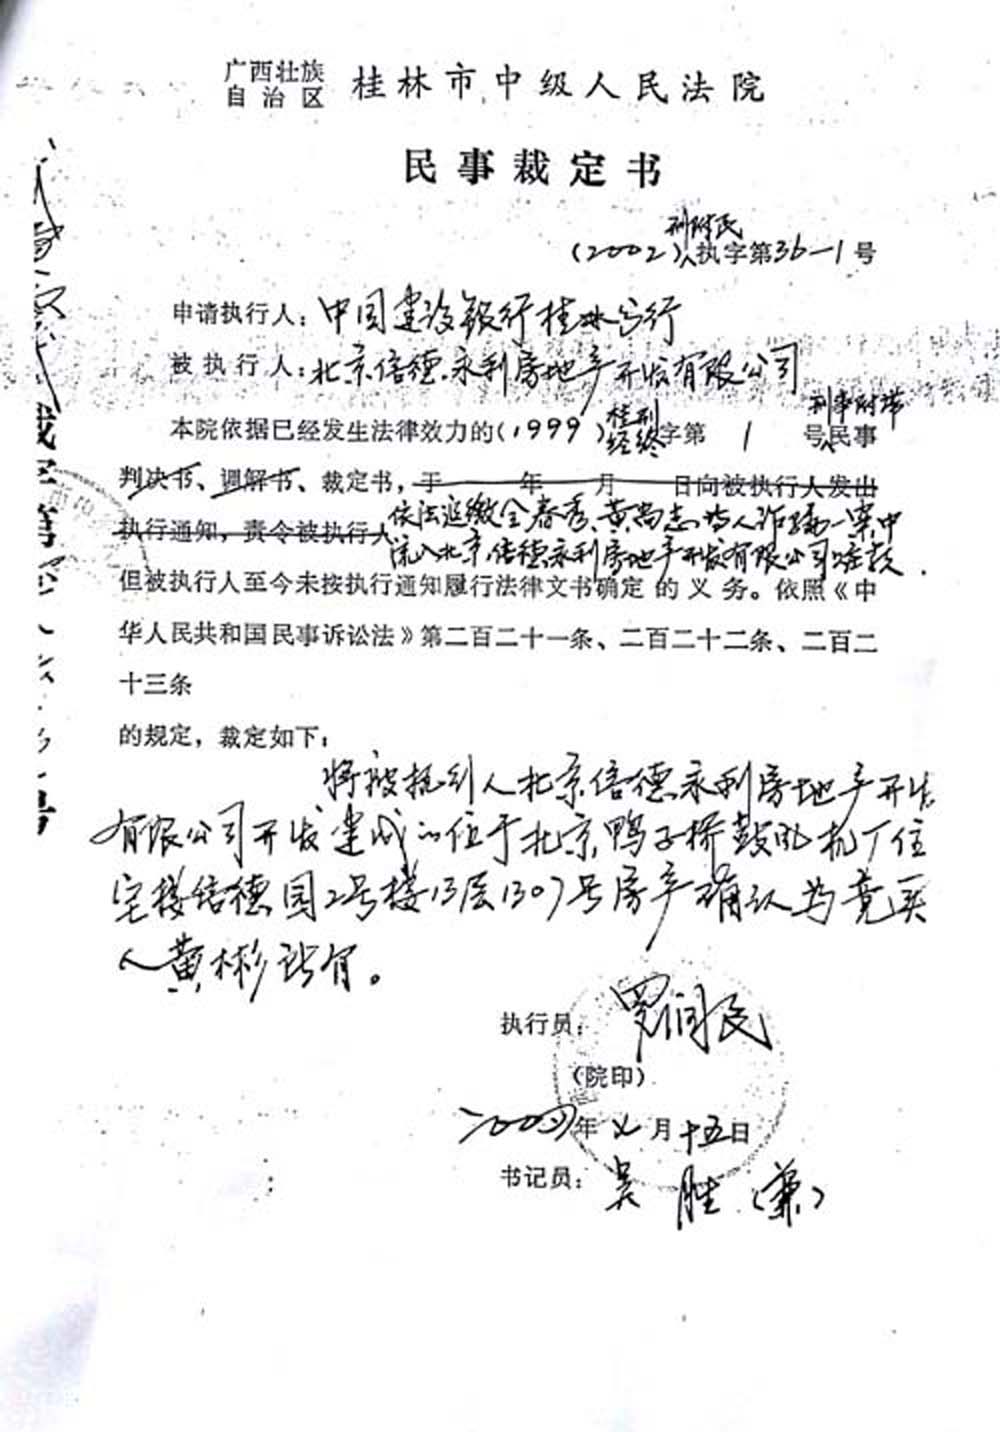 广西壮族
自治区 桂林市中级人民法院
民事裁定书
刑附民
(2002)执字第36—1号
申请执行人：中国建设银行桂林分行
被执行人：北京信德永利房地产开发有限公司
桂刑 刑事附带
本院依据已经发生法律效力的(1999)经终字第 1 号民事
判决书、调解书、裁定书，于 年 月 日向被执行人发出
执行通知，责令被执行人依法追缴全春秀、黄尚志等人诈骗一案中
流入北京信德永利房地产开发有限公司赃款.
但被执行人至今未按执行通知履行法律文书确定的义务。依照《中
华人民共和国民事诉讼法》第二百二十一条、二百二十二条、二百二
十三条
的规定，裁定如下：
将被执行人北京信德永利房地产开发
有限公司开发建成的位于北京鸭子桥鼓风机厂住
宅楼信德园2号楼13层1307号房产确认为竞买
人黄彬所有。
执行员：罗润民
(院印)
二00四年 月十五日
书记员：吴胜(兼)